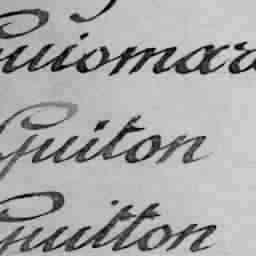 Guiomar
Guiton
Guitton